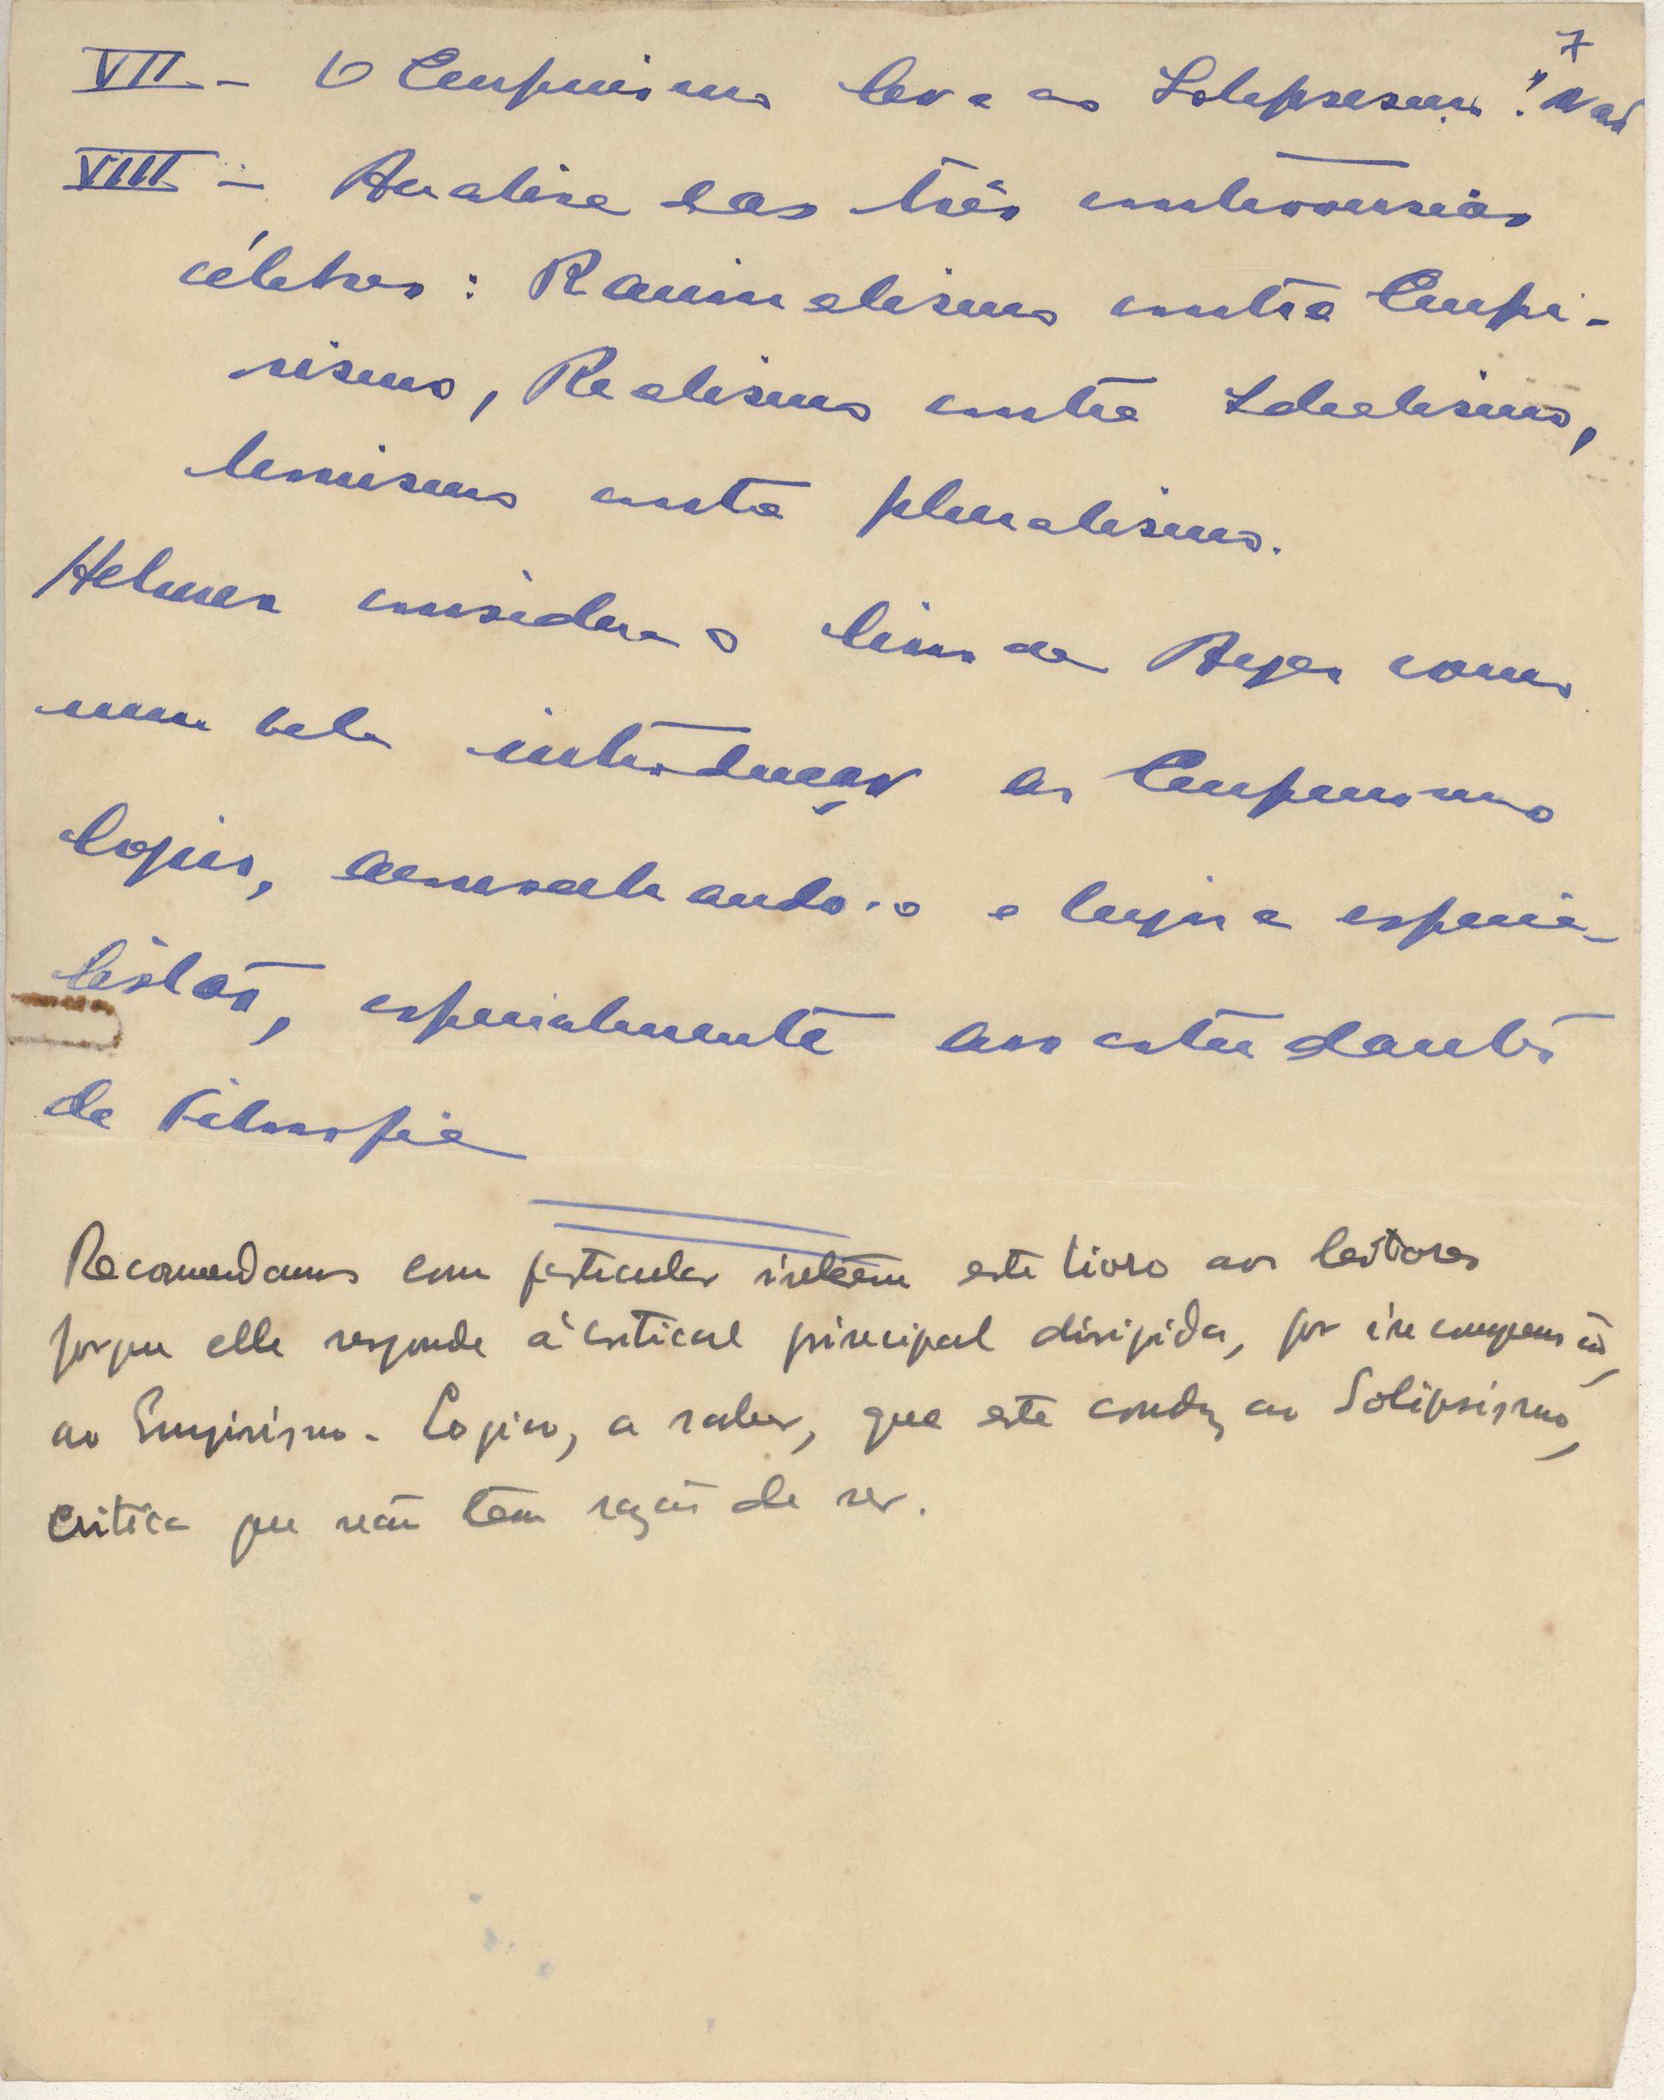 7
VII - O Empirismo leva ao Solipsismo? Não
VIII - Analise das três controversias
célebres: Racionalismo contra Empi-
rismo, Realismo contra Idealismo,
Monismo contra pluralismo.
Helmer considera o livro de Ayer como
uma bela introdução ao Empirismo
Logico, aconselhando-o a especia-
listas, especialmente aos estudantes
de Filosofia
Recomendamos com particular este livro aos leitores
porque elle responde à critica principal dirigida, por incompensão,
ao Empirismo-Logico, a saber, que este conduz ao Solipsismo,
critica que não tem razão de ser.